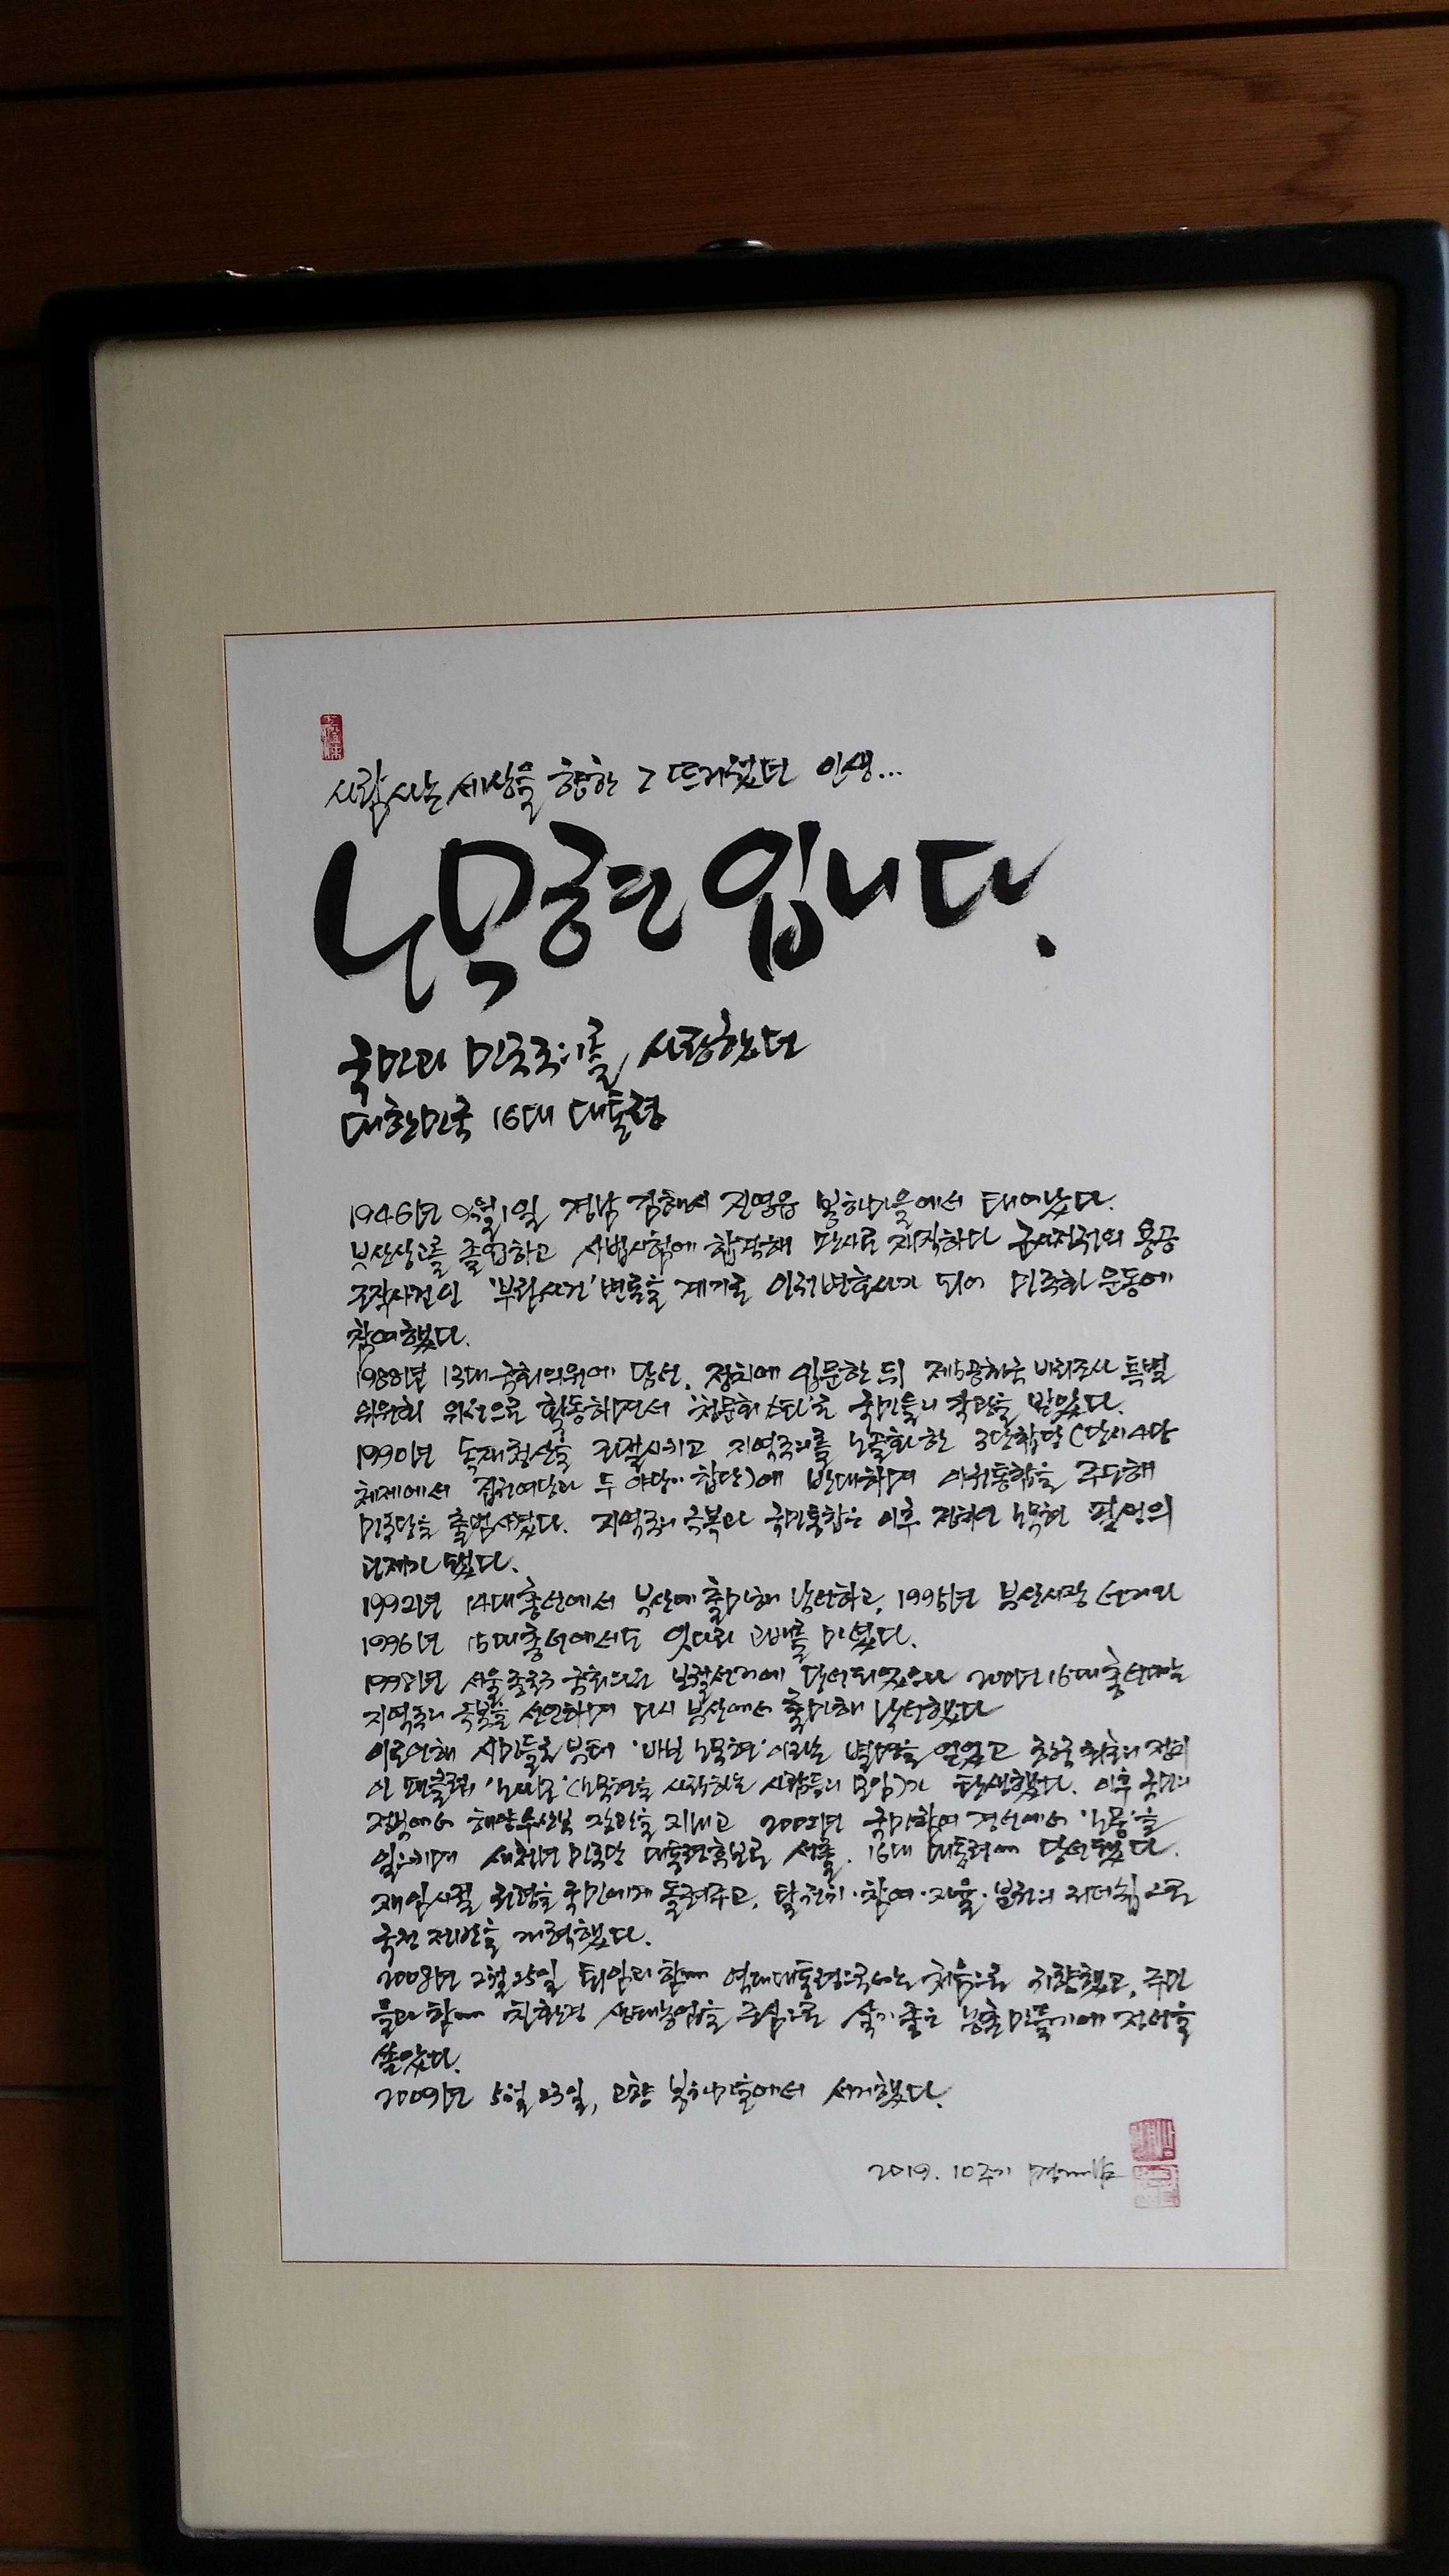 사람사는 세상을 향한 그 뜨거웠던 인생...
노무현입니다.
국민과 민주주의를 사랑했던
대한민국 16대 대통령
1946년 9월 1일 경남 김해시 진영읍 봉하마을에서 태어났다.
부산상고를 졸업하고 사법시험에 합격해 판사로 재직하다 군사정권의 용공
조작사건인 '부림사건' 변론을 계기로 인권변호사가 되어 민주화 운동에
참여했다.
1988년 13대 국회의원에 당선, 정치에 입문한 뒤 제5공화국 비리조사 특별
위원회 위원으로 활동하면서 '청문회 스타'로 국민들의 각광을 받았다.
1990년 독재청산을 좌절시키고 지역주의를 노골화한 3당합당(당시 4당
체제에서 집권여당과 두 야당이 합당)에 반대하며 야권통합을 주도해
민주당을 출범시켰다. 지역주의 극복과 국민통합은 이후 정치인 노무현 필생의
과제가 됐다.
1992년 14대 총선에서 부산에 출마해 낙선하고, 1995년 부산시장 선거와
1996년 15대 총선에서도 잇따라 고배를 마셨다.
1998년 서울 종로구 국회의원 보궐선거에 당선되었으나 2000년 16대 총선때는
지역주의 극복을 선언하며 다시 부산에서 출마해 낙선했다
이로 인해 시민들로부터 '바보 노무현'이라는 별명을 얻었고 한국 최초의 정치
인 팬클럽 '노사모'(노무현을 사랑하는 사람들의 모임)가 탄생했다. 이후 국민의
정부에서 해양수산부 장관을 지내고 2002년 국민참여 경선에서 '노풍'을
일으키며 새천년 민주당 대통령후보로 선출, 16대 대통령에 당선됐다.
재임시절 권력을 국민에게 돌려주고, 탈권위·참여·자율·분권의 리더십으로
국정 제반을 개혁했다.
2008년 2월 25일 퇴임과 함께 역대대통령으로서는 처음으로 귀향했고, 주민
들과 함께 친환경 생태농업을 중심으로 살기 좋은 농촌 만들기에 정성을
쏟았다.
2009년 5월 23일, 고향 봉하마을에서 서거했다.
2019. 10주기